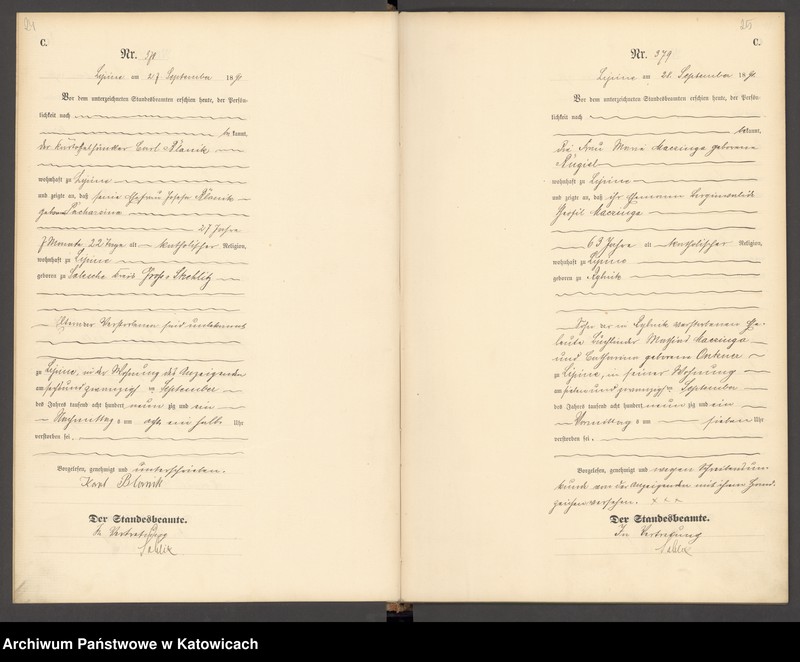 24
C.
Nr.
Lipine am 27 September 18 91
Vor dem unterzeichneten Standesbeamten erschien heute, der Persön-
lichkeit nach
be kannt,
der Kartoffelhändler Carl
wohnhaft zu Lipine
und zeigte an, daß seine Ehefrau Josefa
geborene
27 Jahre
7 Monate 22 Tage alt katholischer Religion,
wohnhaft zu Lipine
geboren zu Kreis Groß Strehlitz
Verstorbenen sind unbekannt
zu Lipine, in der Wohnung des Anzeigenden
am sechsundzwanzigsten September
des Jahres tausend acht hundert neun zig und ein
Nachmittags um acht ein halb Uhr
verstorben sei.
Vorgelesen, genehmigt und unterschrieben.
Karl
Der Standesbeamte.
In Vertretung
25
C.
Nr. 379
Lipine am September 18 91
Vor dem unterzeichneten Standesbeamten erschien heute, der Persön-
lichkeit nach
bekannt,
die Frau Marie geborene
wohnhaft zu Lipine
und zeigte an, daß ihr Ehemann
63 Jahre alt katholischer Religion,
wohnhaft zu Lipine
geboren zu Rybnik
Sohn der in Rybnik verstorbenen Ehe-
leute
und Catharina geborene
zu Lipine, in seiner Wohnung
am siebenundzwanzigsten September
des Jahres tausend acht hundert neun zig und ein
Vormittags um sieben Uhr
verstorben sei.
Vorgelesen, genehmigt und wegen Schreibensun-
kunde von der Anzeigenden mit ihrem Hand-
zeichen versehen. x x x
Der Standesbeamte.
In Vertretung
Archiwum Państwowe w Katowicach